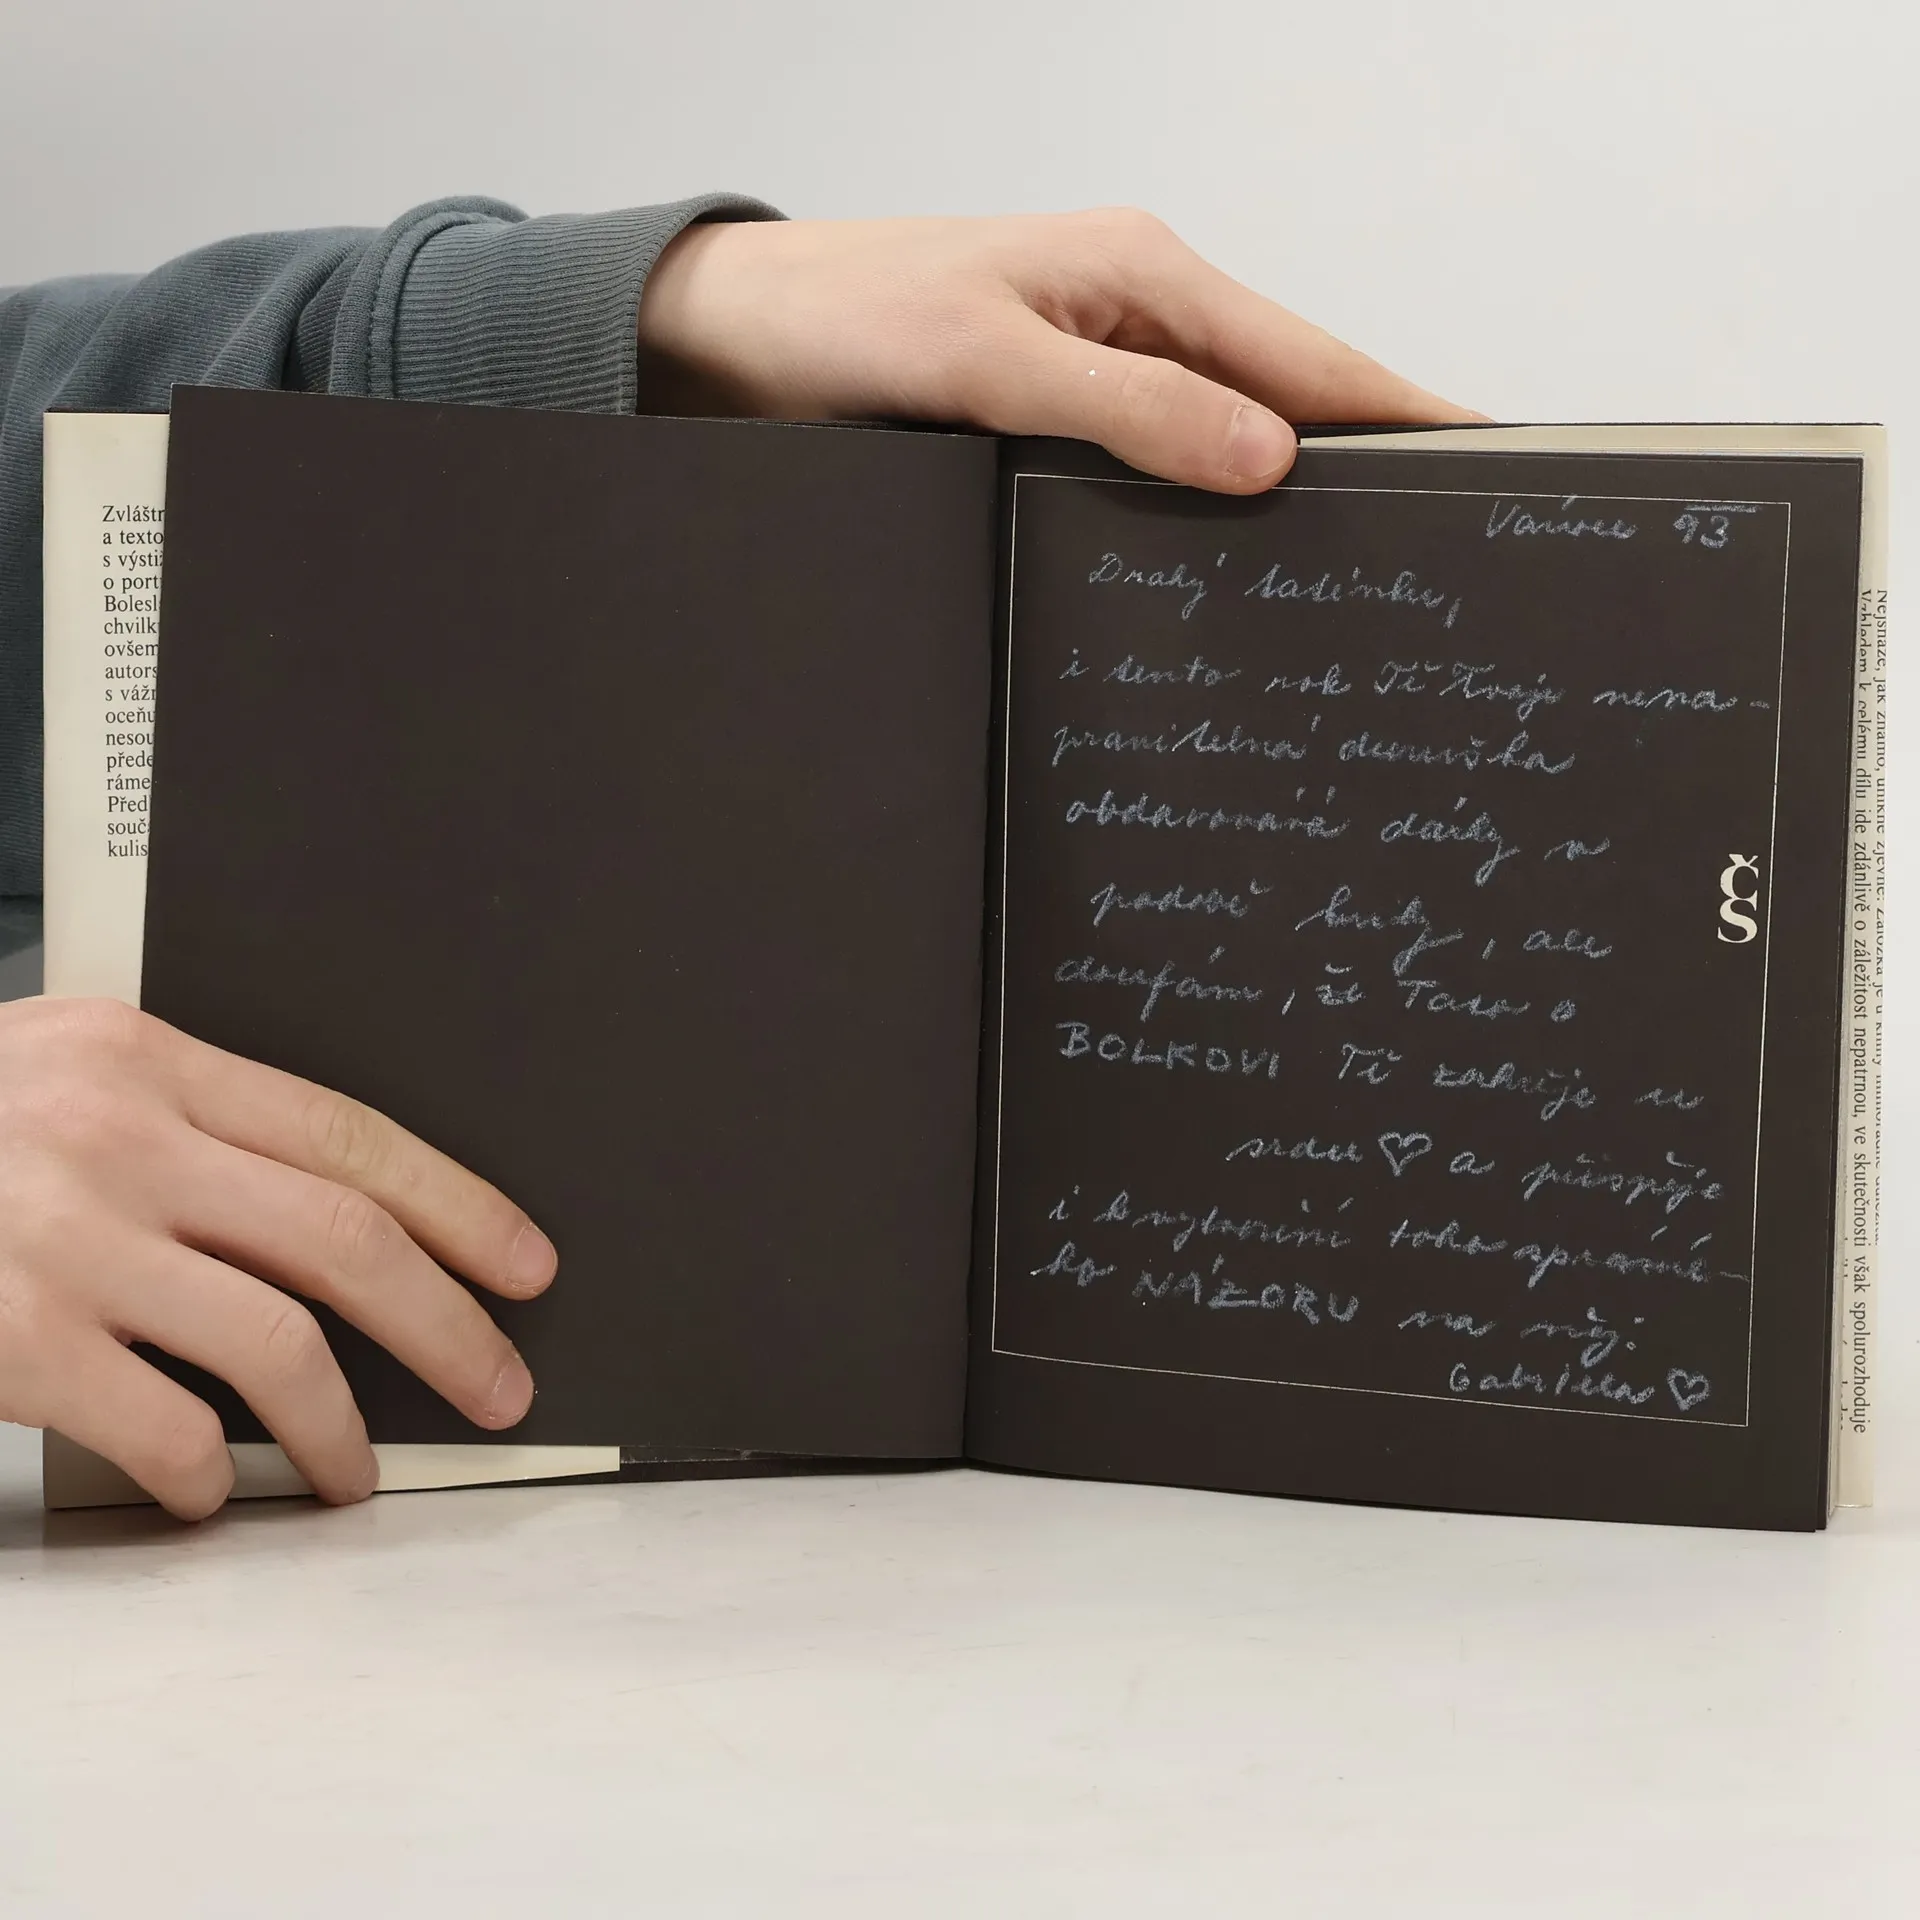 Zvláštn
a texto
s výstiž
o portr
Bolesl
chvilk
ovšem
autors
s vážn
oceňu
nesou
přede
ráme
Před
souč
kulis
Vánoce 93
Drahý tatínku,
i tento rok Tě Tvoje nena-
pravitelná dceruška
obdarovává dárky v
podobě knihy, ale
doufám, že Tato o
BOLKOVI Tě zahřeje u
srdce ♡ a přispěje
i k vytvoření toho správné-
ho NÁZORU na něj.
Gabriela ♡
ČS
Nejsnáze, jak známo, unikne zjevné. Založka je u knihy mimořádně důležitá.
Vzhledem k celému dílu jde zdánlivě o záležitost nepatrnou, ve skutečnosti však spolurozhoduje